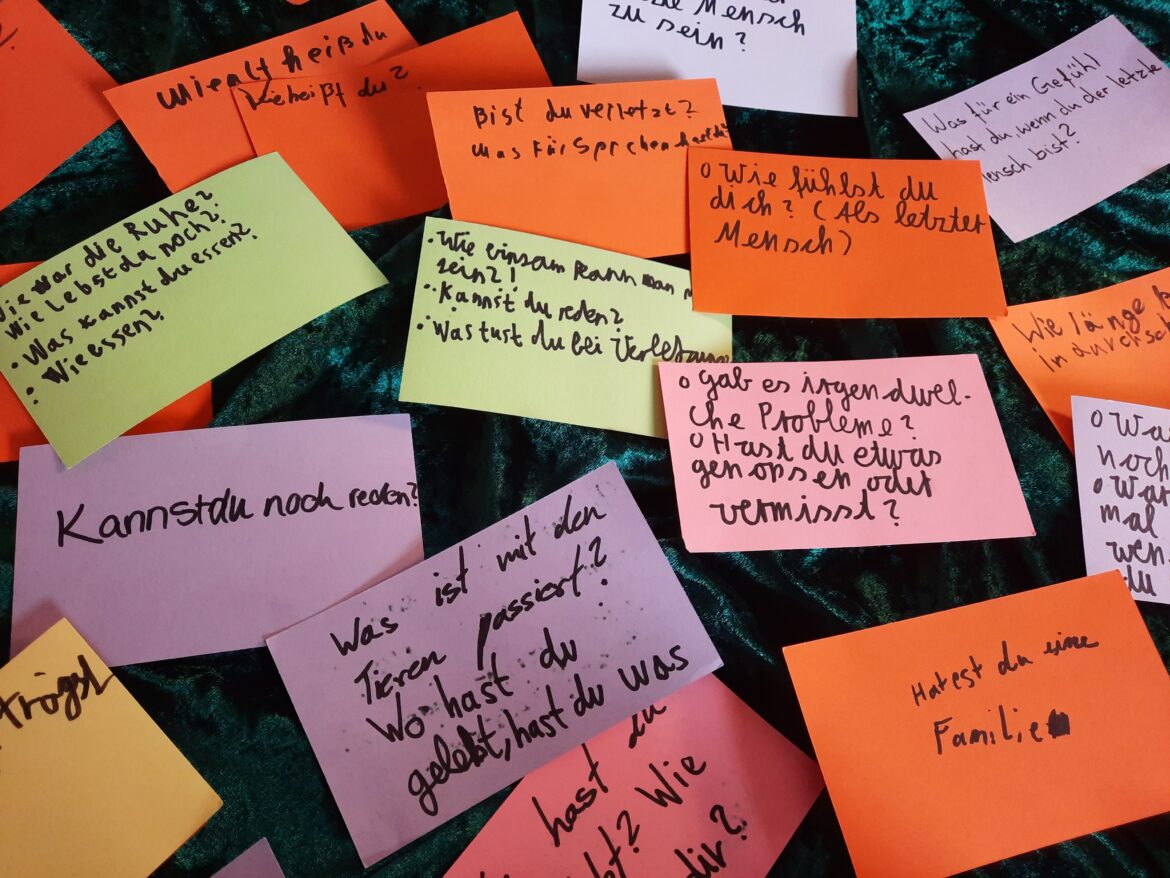 Mensch
zu sein?
Was für ein Gefühl
hast du, wenn du der letzte
Mensch bist?
wie alt heißt du
Wie heißt du?
Bist du verletzt?
was für Sprchen hast du
o Wie fühlst du
dich? (Als letzter
Mensch)
Wie war die Ruhe?
Wie lebst du noch?
• Was kannst du essen?
• Wie essen?
• Wie einsam kann man
sein?!
• Kannst du reden?
• Was tust du bei
Wie länge
In durchsch
o gab es irgendwel-
che Probleme?
o Hast du etwas
genossen oder
vermisst?
o Wa
noch
o War
mal
wen
du
Kannst du noch reden?
Was ist mit den
Tieren passiert?
Wo hast du
gelebt, hast du was
trägst
hast du
? Wie
dir?
Hatest du eine
Familie